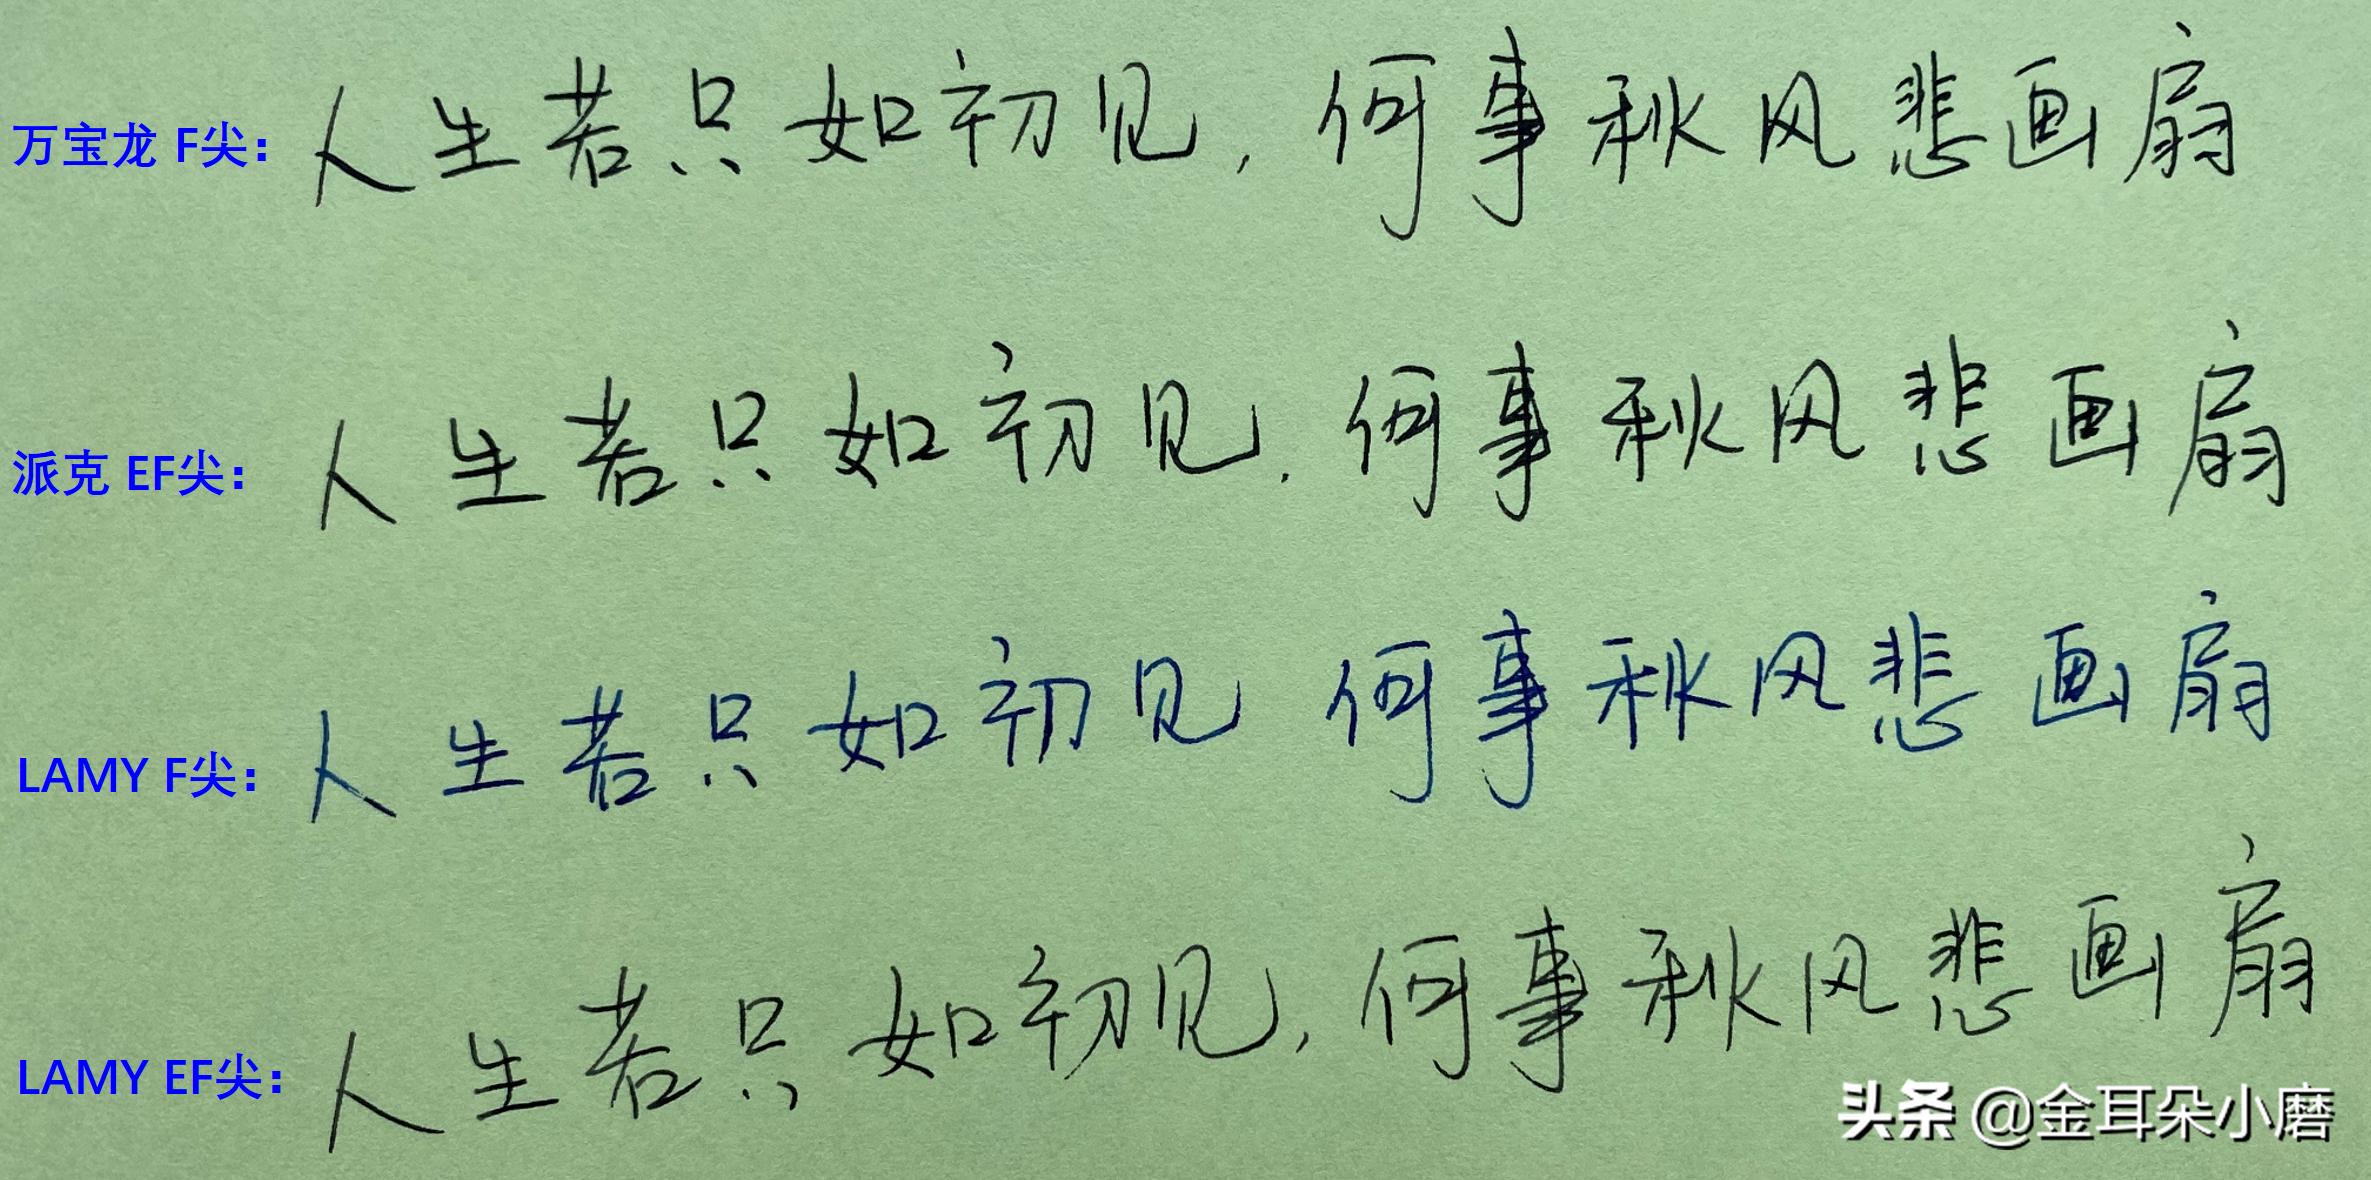 万宝龙 F尖：人生若只如初见，何事秋风悲画扇
派克 EF尖：人生若只如初见，何事秋风悲画扇
LAMY F尖：人生若只如初见 何事秋风悲画扇
LAMY EF尖：人生若只如初见，何事秋风悲画扇
头条 @金耳朵小磨